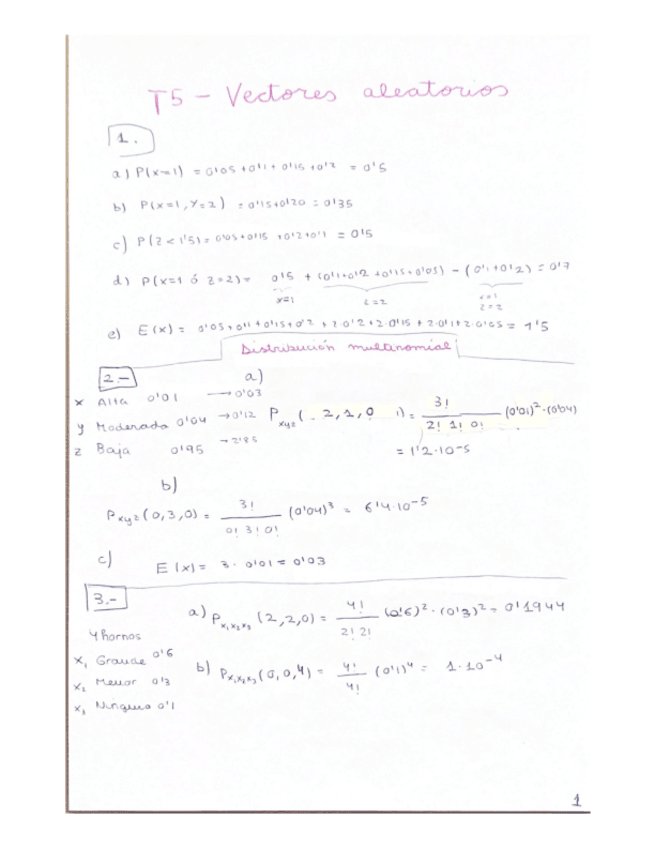 T5 - Vectores aleatorios
1.
a) P(x=1) = 0'05 + 0'1 + 0'15 + 0'2 = 0'5
b) P(x=1, Y=2) = 0'15 + 0'20 = 0'35
c) P(Z < 1'5) = 0'05 + 0'15 + 0'2 + 0'1 = 0'5
d) P(x=1 ó z=2) = 0'5 + (0'1 + 0'2 + 0'15 + 0'05) - (0'1 + 0'2) = 0'7
x=1 z=2 x=1
z=2
e) E(x) = 0'05 + 0'1 + 0'15 + 0'2 + 2·0'2 + 2·0'15 + 2·0'1 + 2·0'05 = 1'5
Distribución multinomial
2.- a)
x Alta 0'01 → 0'03
y Moderada 0'04 → 0'12 Pxyz (2,1,0) = 3! / 2! 1! 0! (0'01)²·(0'04)
z Baja 0'95 → 2'85 = 1'2·10-5
b)
Pxyz (0,3,0) = 3! / 0! 3! 0! (0'04)³ = 6'4·10-5
c) E(x) = 3·0'01 = 0'03
3.-
a) Px₁x₂x₃ (2,2,0) = 4! / 2! 2! (0'6)²·(0'3)² = 0'1944
4 hornos
x₁ Grande 0'6
b) Px₁x₂x₃ (0,0,4) = 4! / 4! (0'1)⁴ = 1·10-4
x₂ Menor 0'3
x₃ Ninguno 0'1
1